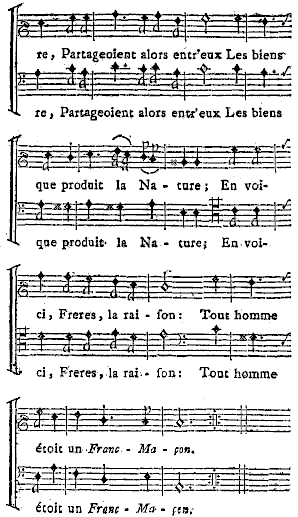 re, Partageoient alors entr'eux Les biens
re, Partageoient alors entr'eux Les biens
que produit la Na - ture; En voi-
que produit la Na - ture; En voi-
ci, Freres, la rai - ſon: Tout homme
ci, Freres, la rai - ſon: Tout homme
étoit un Franc - Ma - çon.
étoit un Franc - Ma - çon.